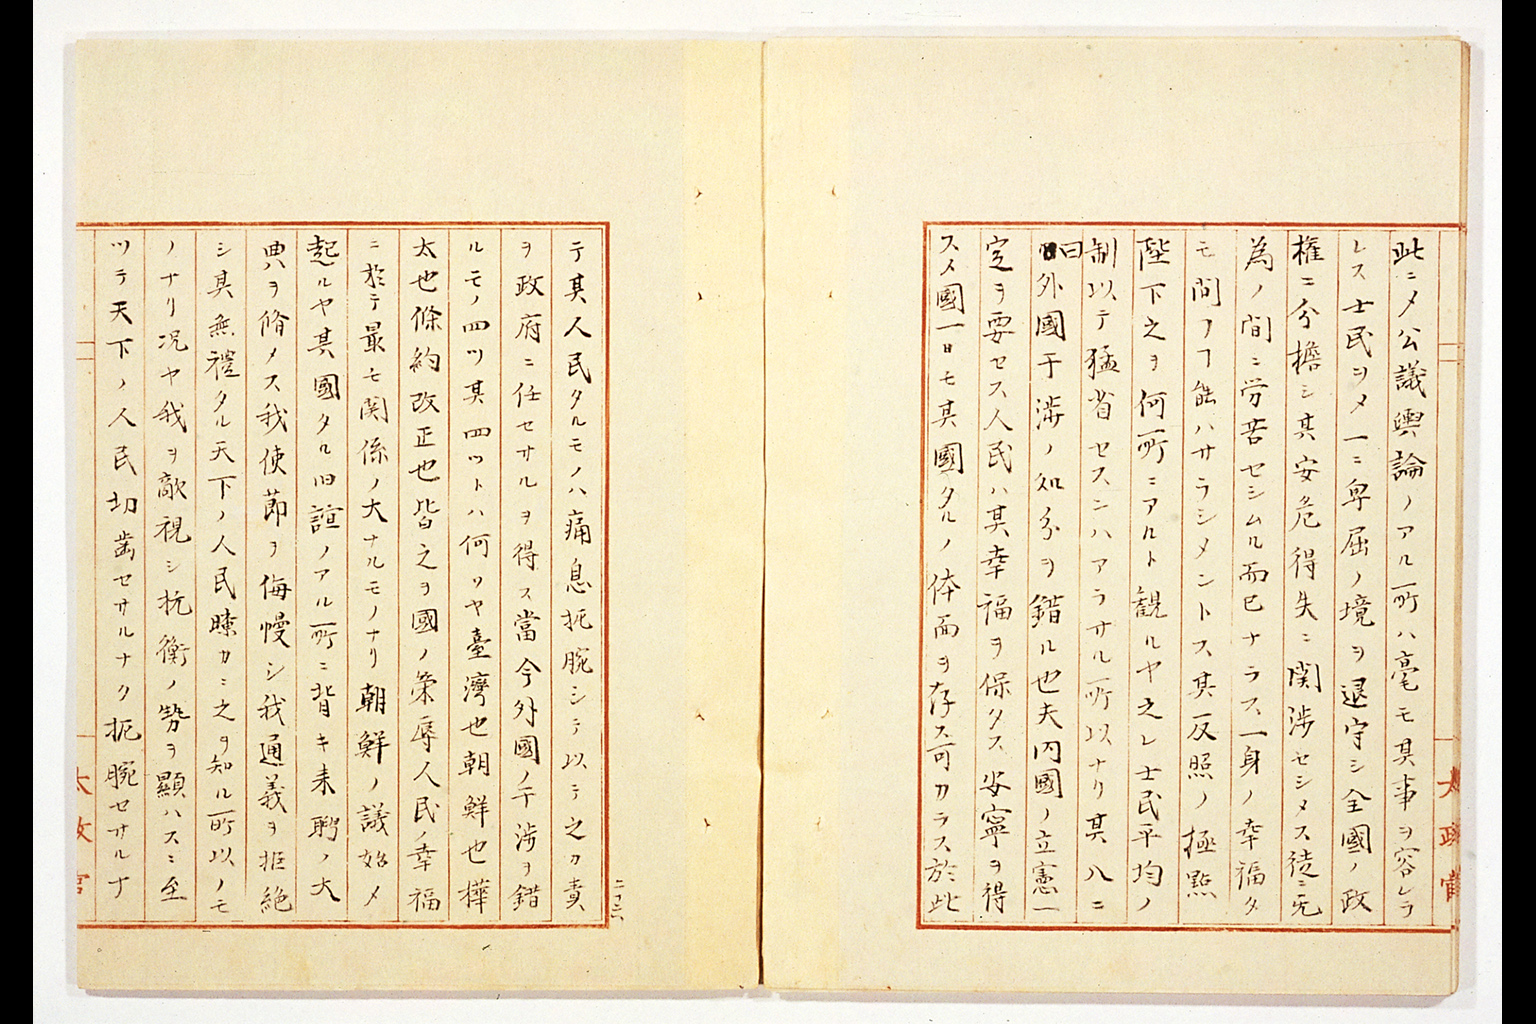 此ニメ公議輿論ノアル所ハ毫モ其事ヲ容レラ
レス士民ヲメ一ニ卑屈ノ境ヲ退守シ全國ノ政
権ニ分擔シ其安危得失ニ関渉セシメス徒ニ
為ノ間ニ労苦セシムル而已ナラス一身ノ幸福タ
モ間フヿ能ハサラシメントス其反照ノ極點
陛下之ヲ何所ニアルト観ルヤ之レ士民平均ノ
制以テ猛省セスンハアラサル所以ナリ其八ニ
曰外國干渉ノ知分ヲ錯ル也夫内國ノ立憲一
定ヲ要セス人民ハ其幸福ヲ保タス安寧ヲ得
スメ國一日モ其國タルノ体面ヲ存ス可カラス於此
テ其人民タルモノハ痛息扼腕シテ以テ之カ責
ヲ政府ニ任セサルヲ得ス當今外國ノ干渉ヲ錯
ルモノ四ツ其四ツトハ何ソヤ臺灣也朝鮮也樺
太也條約改正也皆之ヲ國ノ榮辱人民ノ幸福
ニ於テ最モ関係ノ大ナルモノナリ朝鮮ノ議始メ
起ルヤ其國タル旧誼ノアル所ニ背キ来聘ノ大
典ヲ脩メス我使節ヲ侮慢シ我通義ヲ拒絶
シ其無禮タル天下ノ人民暸カニ之ヲ知ル所以ノモ
ノナリ况ヤ我ヲ敵視シ抗衡ノ勢ヲ顯ハスニ至
ツテ天下ノ人民切歯セサルナク扼腕セサルナ
二十六
太政官
太政官